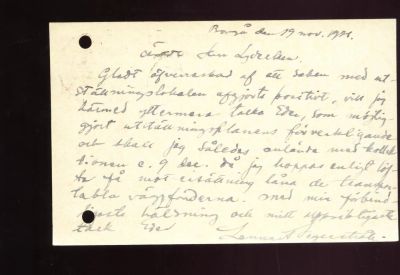 Borgå den 19 nov. 1921.
Gladt öfverraskad af att saken med ut-
ställningslokalen afgjorts positivt, vill jag
härmed yttermera tacka Eder, som möjlig-
gjort utställningsplanens förverkligande
och skall jag således anlända med kollek-
tionen c. 9 dec. då jag hoppas enligt löf-
te få mot ersättning låna de transpor-
tabla väggfonderna. Med min förbind-
ligaste hälsning och mitt uppriktigaste
tack Eder
Lennart Segerstråle.